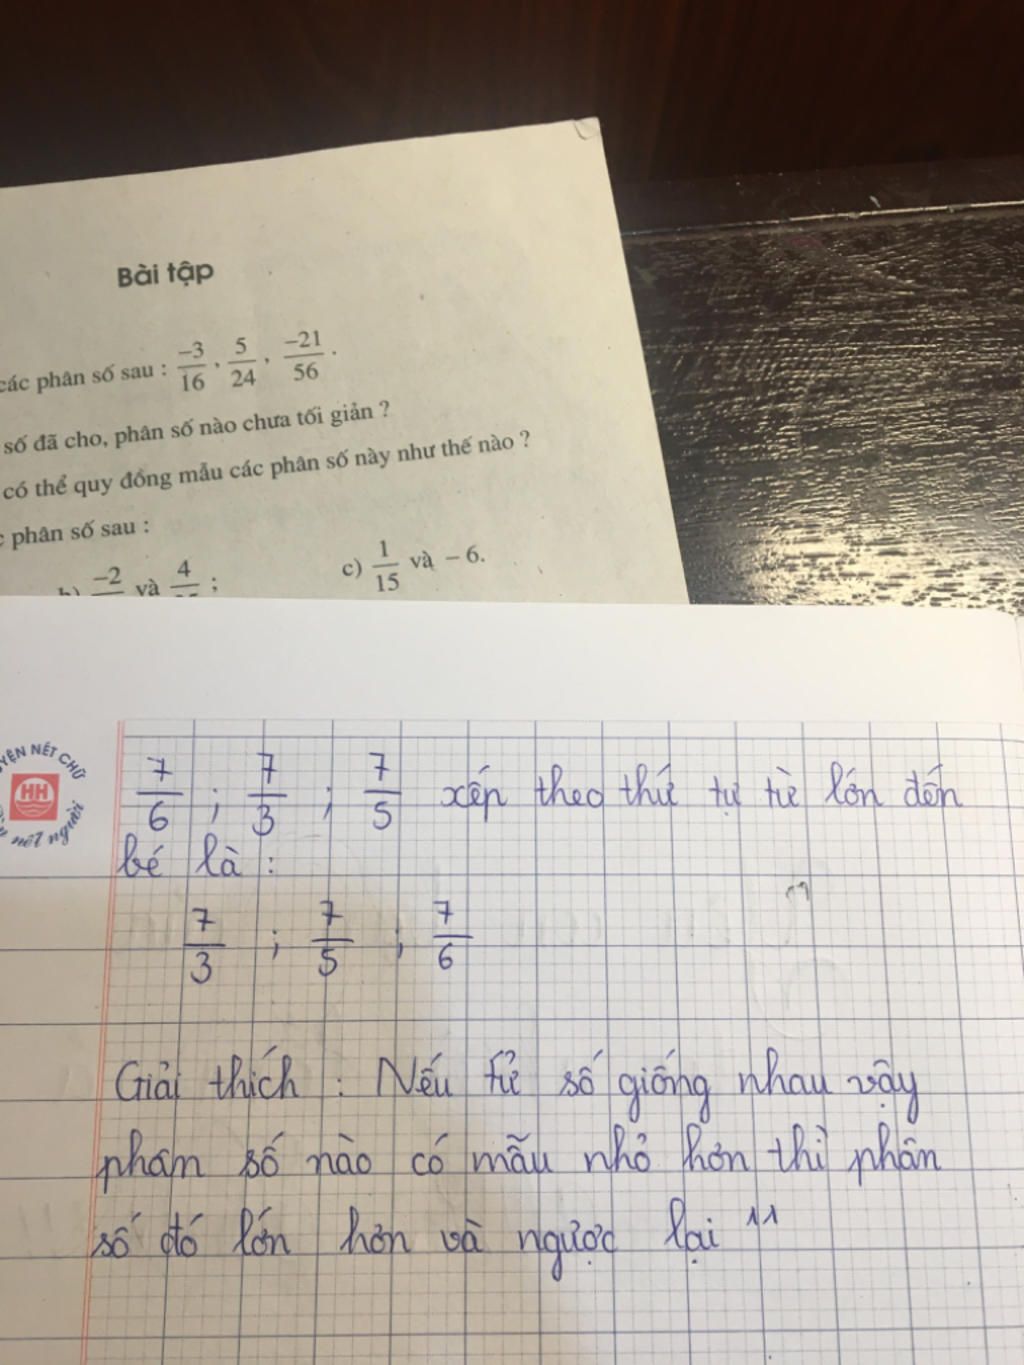 Bài tập
các phân số sau : -3/16 , 5/24 , -21/56 .
số đã cho, phân số nào chưa tối giản ?
có thể quy đồng mẫu các phân số này như thế nào ?
phân số sau :
-2 và 4 ; c) 1/15 và - 6.
NÉT CHỮ
HH
nết người
7/6 ; 7/3 ; 7/5 xếp theo thứ tự từ lớn đến
bé là :
7/3 ; 7/5 ; 7/6
Giải thích : Nếu tử số giống nhau vậy
phân số nào có mẫu nhỏ hơn thì phân
số đó lớn hơn và ngược lại ^^